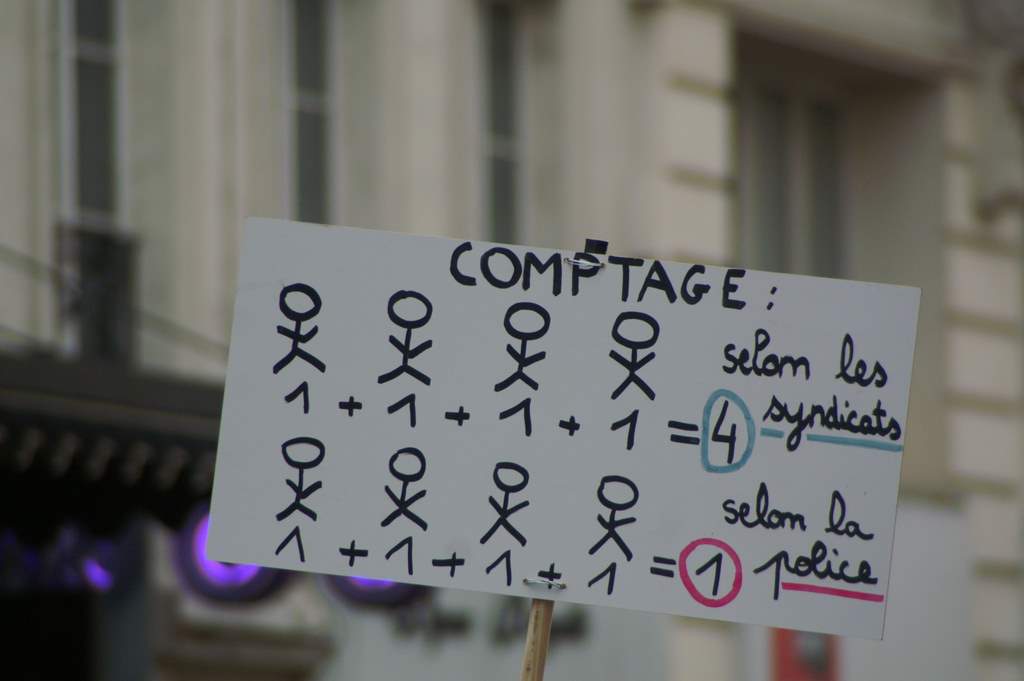 COMPTAGE :
1 + 1 + 1 + 1 = 4 selon les syndicats
1 + 1 + 1 + 1 = 1 selon la police